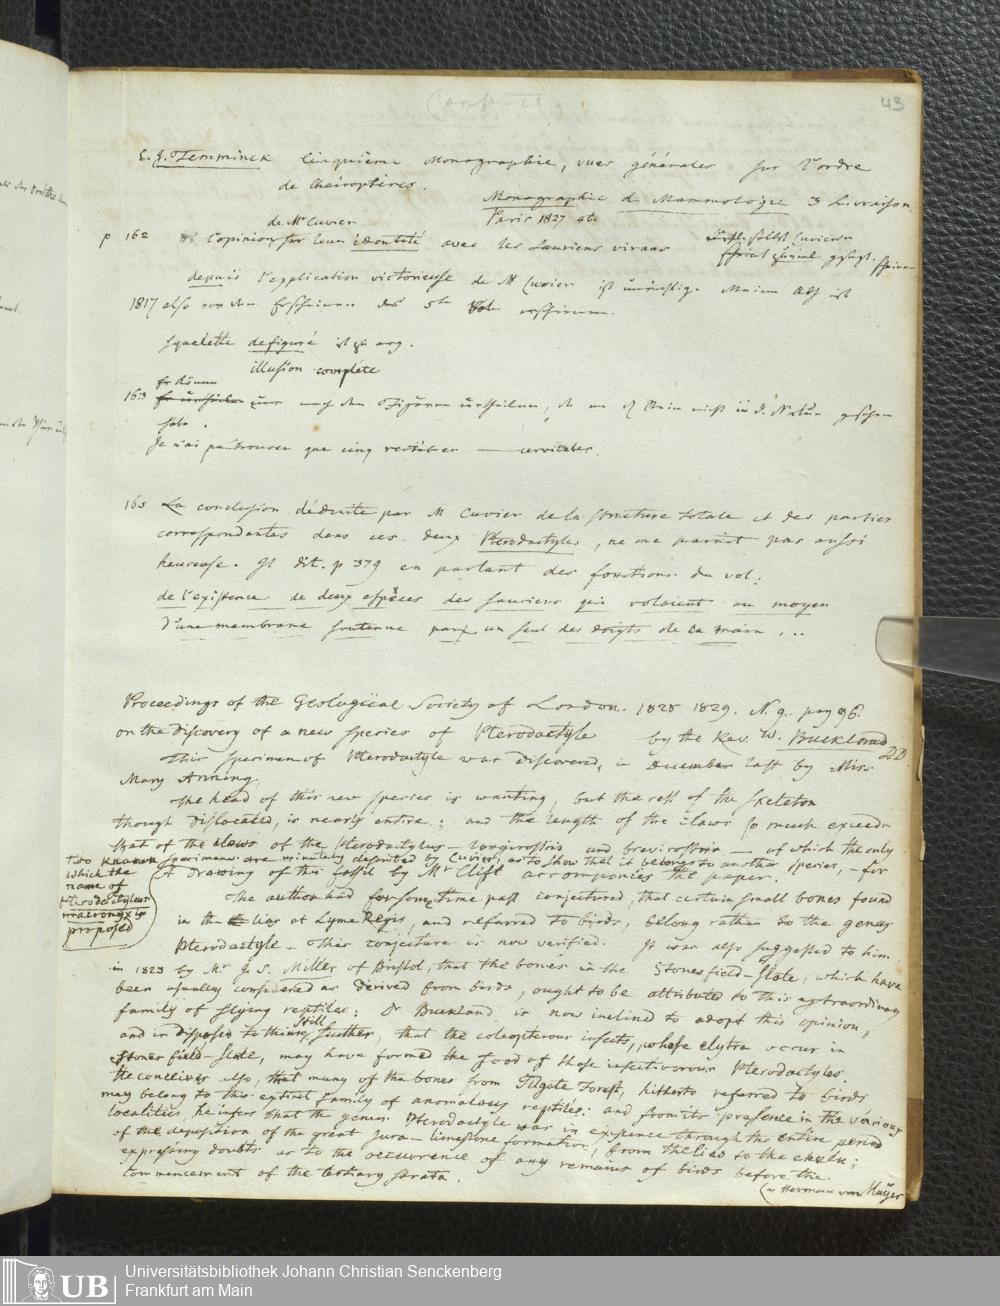 43
C. J. Temminck cinquième Monographie, vues générales sur l'ordre
de Cheiroptères.
Monographie de Mammologie 3 Livraison
Paris 1827 4to
de Mr Cuvier
p 162 l'opinion sur leur identité avec les Sauriens vivans
depuis l'explication victorieuse de M Cuvier ist unrichtig. Meine Abh ist
1817 also vor dem Erscheinen des 5ten erschienen.
squelétte defiguré ist zu arg.
illusion complète
163 nach den Figuren urtheilen, da er es nicht in d. Natur gesehen
habe.
Je n'ai pu trouver que cinq vertèbres cervicales.
165 La conclusion déduite par M Cuvier de la structure totale et des parties
correspondantes dans ces deux Pterodactyles, ne me parait pas aussi
heureuse. Il dit. p 379 en parlant des fonctions du vol:
de l'existence de deux espèces des sauriens qui volaient au moyen
d'une membrane soutenue par un seul des doigts de la main ...
Proceedings of the Geological Society of London. 1828 1829. N. 9. pag 96.
on the discovery of a new species of Pterodactyle by the Rev. W. Buckland DD
This specimen of Pterodactyle was discovered, in December last by Miss
Mary Anning.
The head of this new species is wanting, but the rest of the skeleton
though dislocated, is nearly entire; and the length of the claws so much exceeds
that of the claws of the Pterodactylus – longirostris and brevirostris – of which the only
two known specimens are minutely described by Cuvier, as to show that it belongs to another species, – for
which the
name of
Pterodactylus
macronyx is
proposed
A drawing of this fossil by Mr Clift accompanies the paper.
The author had for some time past conjectured, that certain small bones found
in the lias at Lyme Regis, and referred to birds, belong rather to the genus
Pterodactyle – This conjecture is now verified. It was also suggested to him,
in 1823 by Mr J. S. Miller of Bristol, that the bones in the Stonesfield – slate, which have
been usually considered as derived from birds, ought to be attributed to this extraordinary
family of flying reptiles: Dr Buckland is now inclined to adopt this opinion,
and is disposed to think still further, that the coleopterous insects, whose elytra occur in
Stonesfield – slate, may have formed the food of these insectivorous Pterodactyles.
He conceives also, that many of the bones from Tilgate Forest, hitherto referred to birds
may belong to this extinct family of anomalous reptiles: and from its presence in the various
localities, he infers that the genus Pterodactyle was in existence through the entire period
of the deposition of the great Jura – limestone formation, from the lias to the chalk;
expressing doubts as to the occurrence of any remains of birds before the
commencement of the tertiary strata.
(v Herman von Meÿer
Universitätsbibliothek Johann Christian Senckenberg
Frankfurt am Main
UB